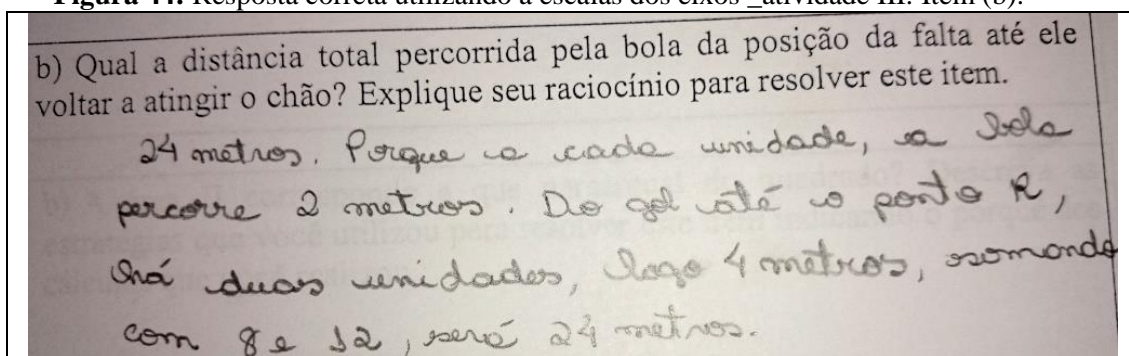 Figura 44: Resposta correta utilizando a escalas dos eixos _atividade III. Item (b).
b) Qual a distância total percorrida pela bola da posição da falta até ele
voltar a atingir o chão? Explique seu raciocínio para resolver este item.
24 metros. Porque a cada unidade, a bola
percorre 2 metros. Do gol até o ponto R,
há duas unidades, logo 4 metros, somando
com 8 e 12, será 24 metros.